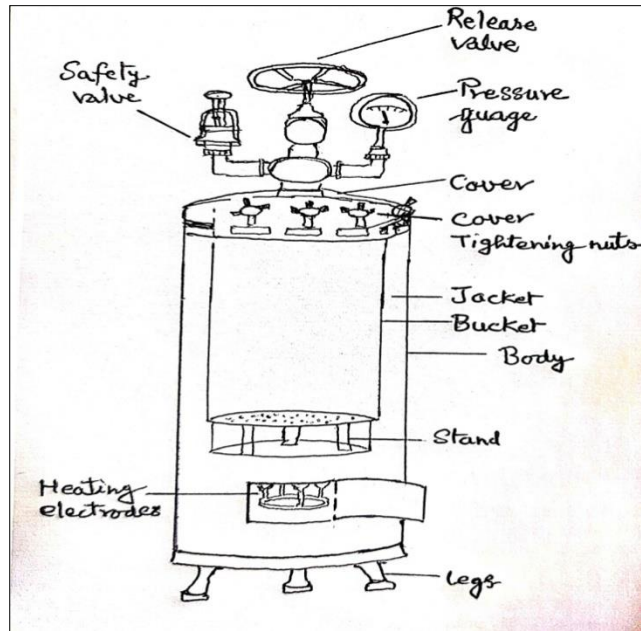 Release
valve
Safety
valve
Pressure
guage
Cover
Cover
Tightening nuts
Jacket
Bucket
Body
Stand
Heating
electrodes
Legs